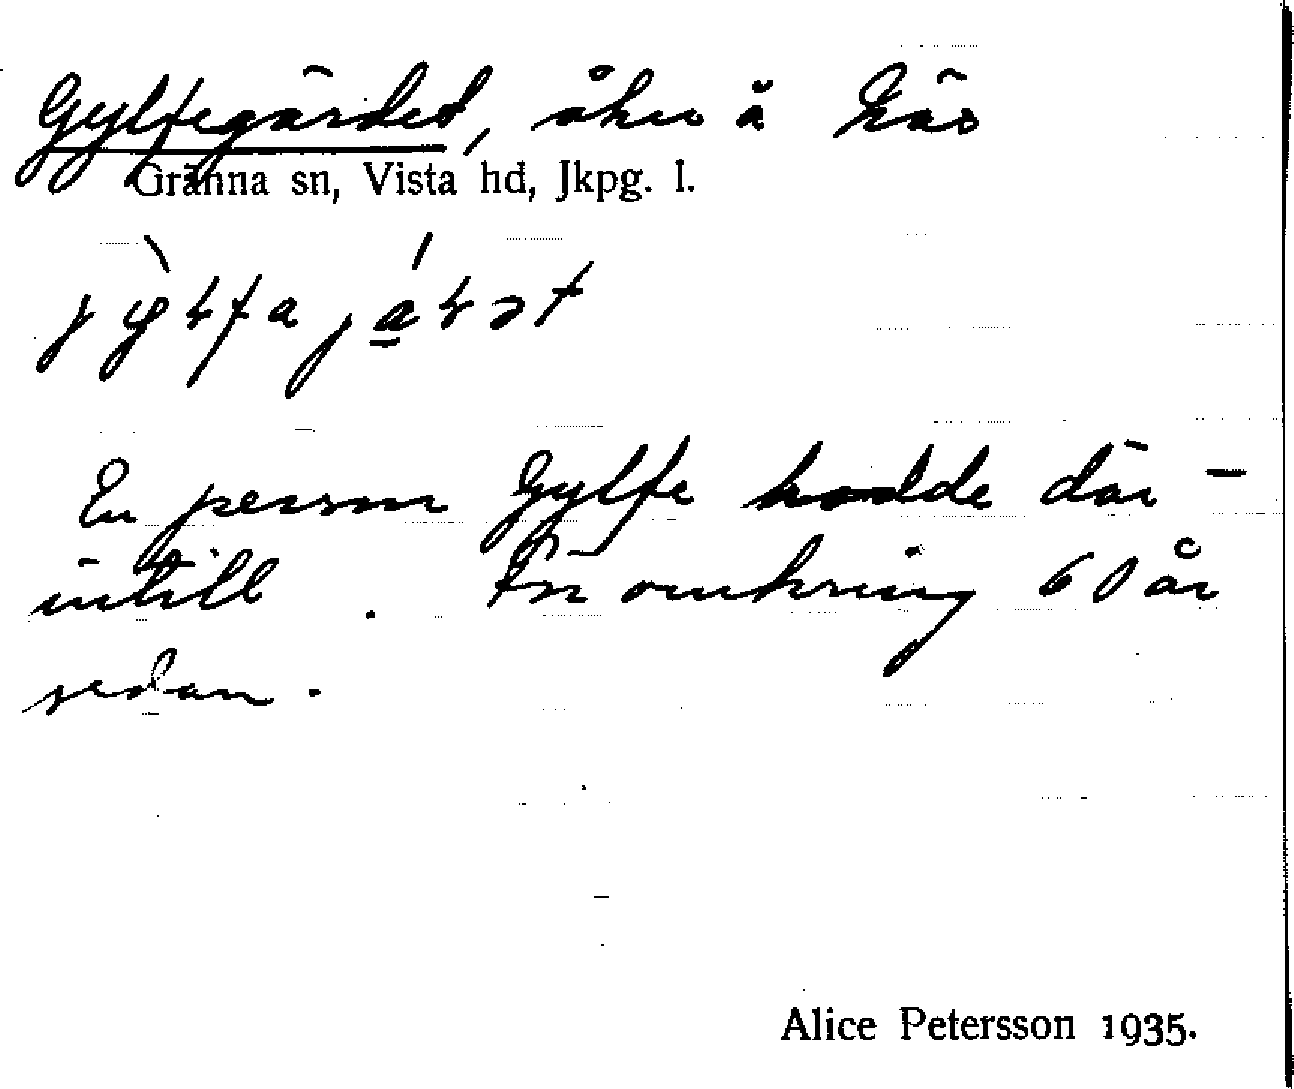 Gylfegärdet, åker å Näs
Gränna sn, Vista hd, Jkpg. l.
En person Gylfe hadde där -
intill. För omkring 60 år
sedan.
Alice Petersson 1935.